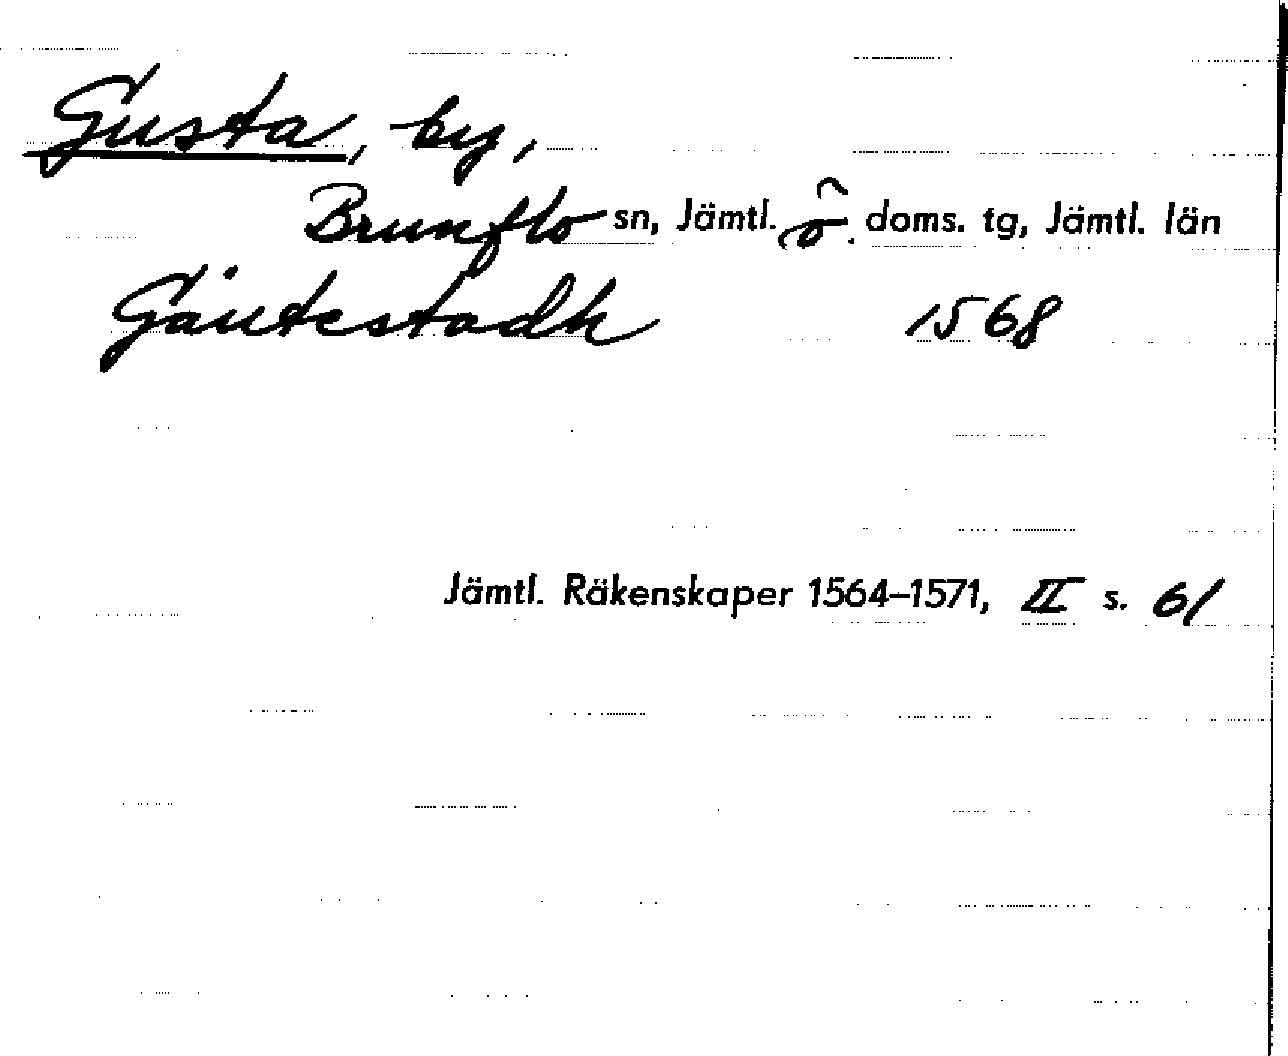 Gusta, by,
Brunflo sn, Jämtl. ö. doms. tg, Jämtl. län
Gȧutestadh 1568
Jämtl. Räkenskaper 1564–1571, II s. 61